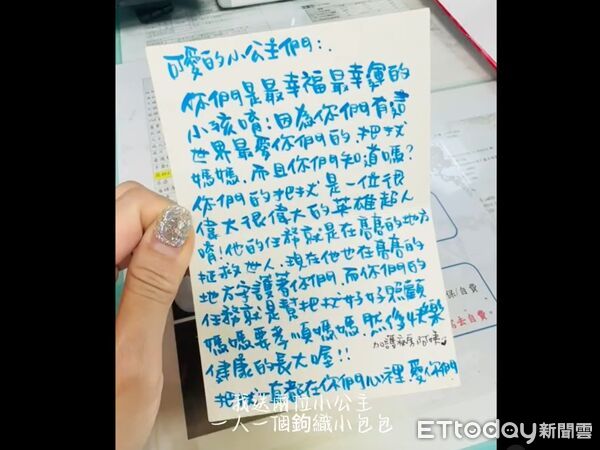 可愛的小公主們:
你們是最幸福最幸運的
小孩唷!因為你們有這
世界最愛你們的把拔
媽媽,而且你們知道嗎?
你們的把拔是一位很
偉大很偉大的英雄超人
唷!他的任務就是在高高的地方
拯救世人.現在他也在高高的
地方守護著你們,而你們的
任務就是幫把拔好好照顧
媽媽要孝順媽媽然後快樂
健康的長大喔!!
加護病房阿姨
把拔一直都在你們心裡愛你們
我送兩位小公主
一人一個鉤織小包包
ETtoday新聞雲
自費